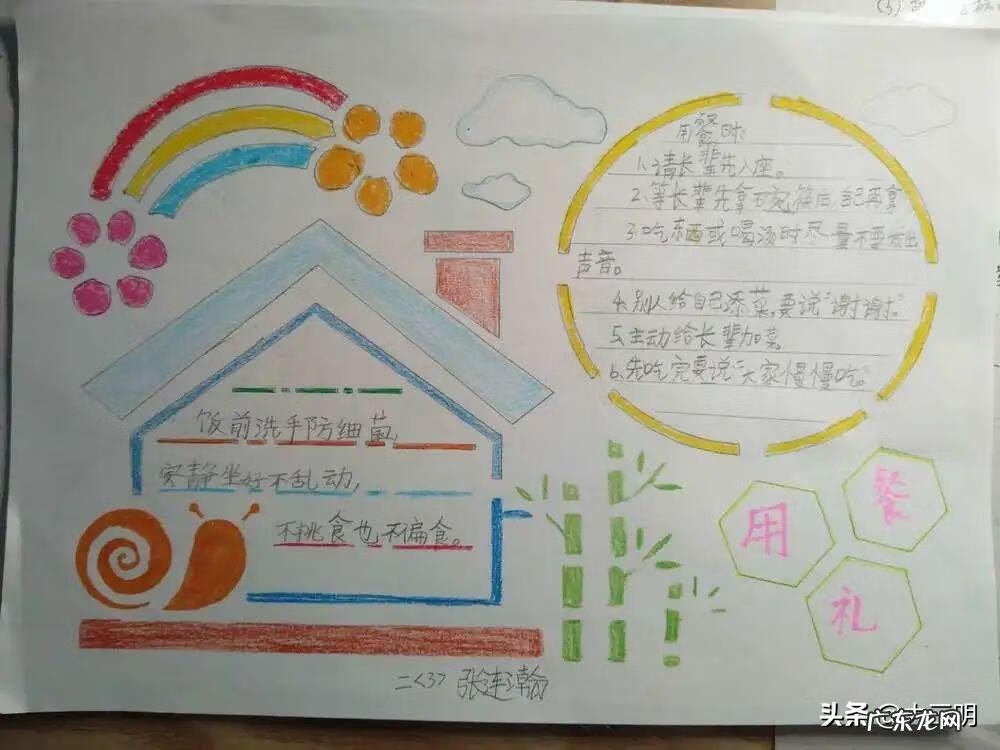 用餐时:
1.请长辈先入座。
2.等长辈先拿石宛筷后,自己再拿
3.吃东西或喝汤时尽量不要发出
声音。
4.别人给自己添菜,要说“谢谢”
5.主动给长辈加菜
6.先吃完要说“大家慢慢吃。”
饭前洗手防细菌,
安静坐好不乱动,
不挑食也不偏食。
用
餐
礼
二<3> 张连瀚
头条
广东龙网